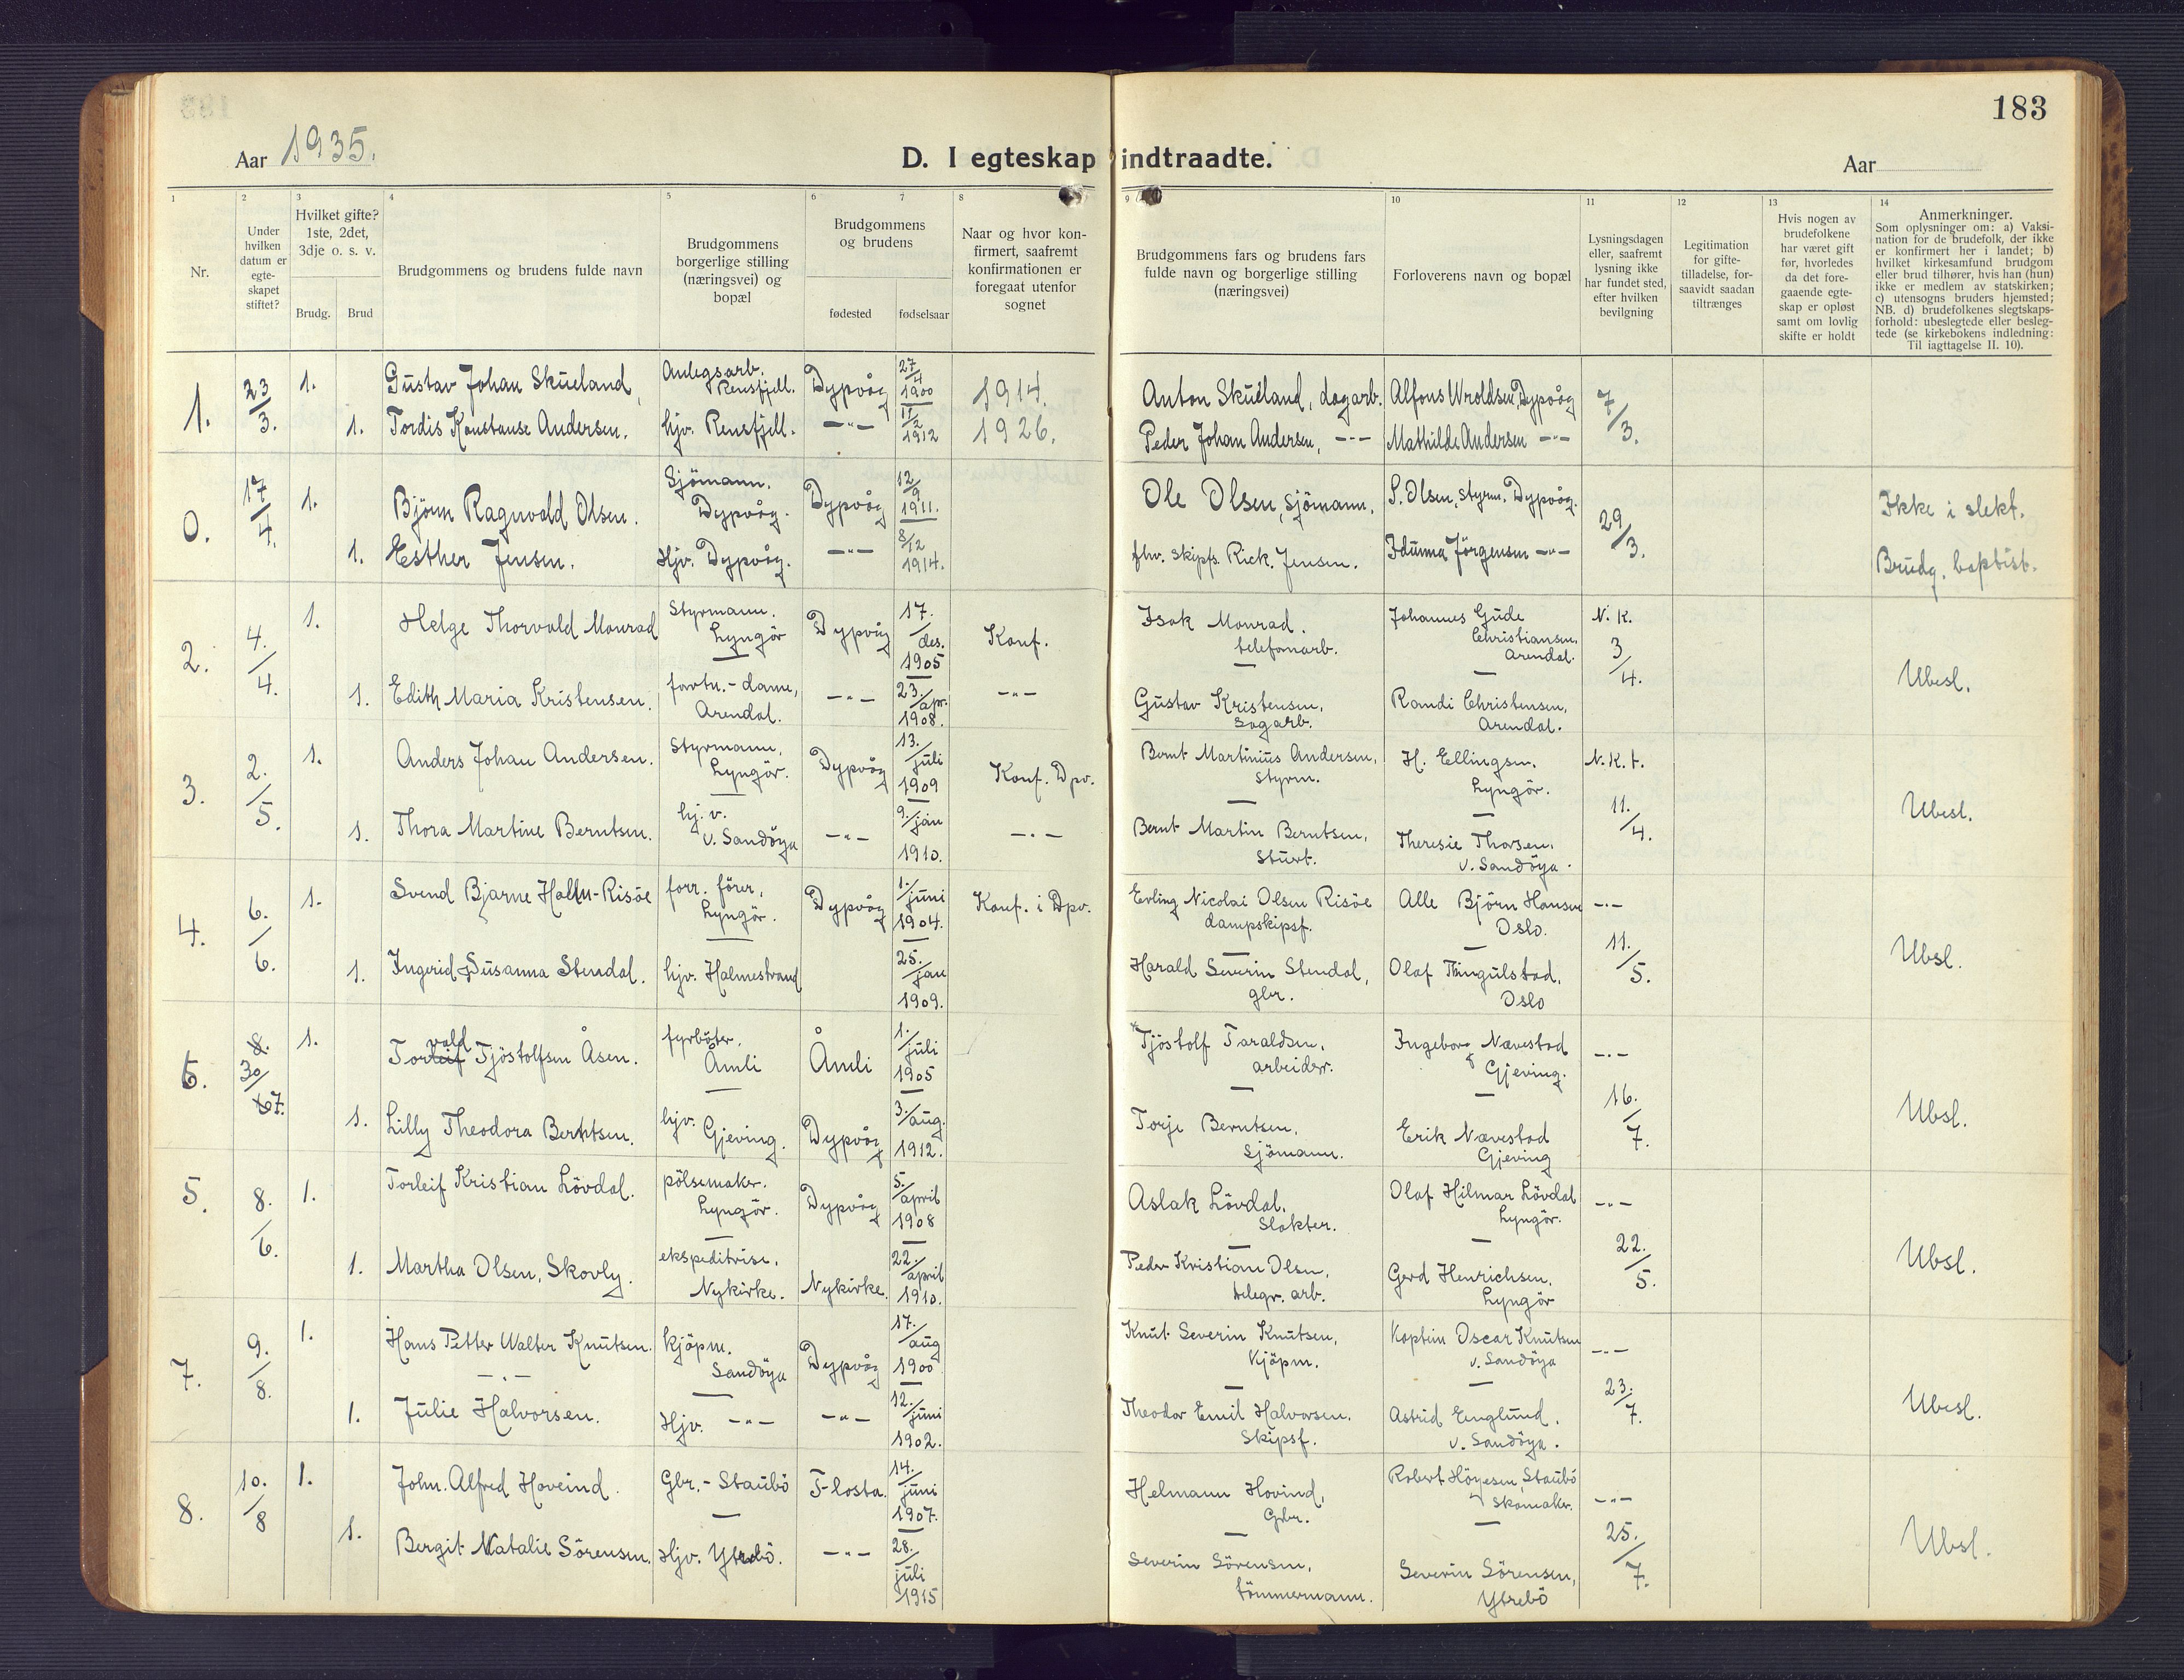 183
Aar 1935.
D. I egteskap indtraadte.
Aar
1 2 3 4 5 6 7 8 9 10 11 12 13 14
Nr.
Under hvilken datum er egte-skapet stiftet?
Hvilket gifte? 1ste, 2det, 3dje o. s. v.
Brudg. Brud
Brudgommens og brudens fulde navn
Brudgommens borgerlige stilling (næringsvei) og bopæl
Brudgommens og brudens
fødested fødselsaar
Naar og hvor kon-firmert, saafremt konfirmationen er foregaat utenfor sognet
Brudgommens fars og brudens fars fulde navn og borgerlige stilling (næringsvei)
Forloverens navn og bopæl
Lysningsdagen eller, saafremt lysning ikke har fundet sted, efter hvilken bevilgning
Legitimation for gifte-tilladelse, for-saavidt saadan tiltrænges
Hvis nogen av brudefolkene har været gift før, hvorledes da det fore-gaaende egte-skap er opløst samt om lovlig skifte er holdt
Anmerkninger.
Som oplysninger om: a) Vaksi-nation for de brudefolk, der ikke er konfirmert her i landet; b) hvilket kirkesamfund brudgom eller brud tilhører, hvis han (hun) ikke er medlem av statskirken; c) utensogns bruders hjemsted; NB. d) brudefolkenes slegtskaps-forhold: ubeslegtede eller besleg-tede (se kirkebokens indledning: Til iagttagelse II. 10).
1. 23/3. 1. Gustav Johan Skueland, Anlegsarb. Rensfjell. Dypvåg 27/4 1900 1914. Anton Skueland, dagarb. Alfons Wroldsen, Dypvåg 7/3.
1. Tordis Konstanse Andersen. hjv. Rensfjell. -"- 17/2 1912 1926. Peder Johan Andersen, -"- Mathilde Andersen -"-
0. 17/4. 1. Björn Ragnvald Olsen. Sjömann. Dypvåg. Dypvåg 12/9 1911. Ole Olsen, sjömann. S. Olsen, styrm. Dypvåg. 29/3. Ikke i slekt.
1. Esther Jensen. Hjv. Dypvåg. -"- 8/12 1914. fhv. skipsf. Rick. Jensen. Idunna Jörgensen -"- Brudg. baptist.
2. 4./4. 1. Helge Thorvald Monrad Styrmann. Lyngör Dypvåg 17./des. 1905 Konf. Isak Monrad. telefonarb. Johannes Gude Christiansen. Arendal. N. K. 3/4. Ubesl.
1. Edith Maria Kristensen. Arendal. -"- 23./apr. 1908. -"- Gustav Kristensen, sagarb. Randi Christensen, Arendal.
3. 2./5. 1. Anders Johan Andersen. Styrmann, Lyngör. Dypvåg 13./juli 1909 Konf. Dpv. Bernt Martinius Andersen, styrm. H. Ellingsen. Lyngör. N. K. t. 11./4. Ubesl.
1. Thora Martine Berntsen. hj. v. V. Sandöya -"- 9./jan 1910. -"- Bernt Martin Berntsen, stuert. Theresie Thorsen. V. Sandöya.
4. 6./6. 1. Svend Bjarne Holm-Risöe forr. förer, Lyngör. Dypvåg 1./juni 1904. Konf. i Dpv. Erling Nicolai Olsen Risöe dampskipsf. Alle Björn Hansen Oslo. -"- 11./5. Ubsl.
1. Ingerid Susanna Stendal. hjv. Holmestrand 25./jan 1909. Harald Severin Stendal, gbr. Olaf Tingulstad, Oslo
6. 30/7. 1. Torvald Tjöstolfsen Åsen. fyrböter. Åmli Åmli 1./juli 1905 Tjöstolf Taraldsen, arbeider. Ingeborg Nævestad Gjeving. -"- 16./7. Ubsl.
1. Lilly Theodora Berntsen. hjv. Gjeving. Dypvåg 3./aug. 1912. Torje Berntsen, sjömann. Erik Nævestad Gjeving
5. 8./6. 1. Torleif Kristian Lövdal. pölsemaker. Lyngör. Dypvåg 5./april 1908 Aslak Lövdal. Slakter. Olaf Hilmar Lövdal Lyngör. -"- 22./5. Ubsl.
1. Martha Olsen, Skovly. ekspeditrise. Nykirke. Nykirke. 22./april 1910. Peder Kristian Olsen, telegr. arb. Gerd Henrichsen. Lyngör
7. 9./8. 1. Hans Petter Walter Knutsen. kjöpm. Sandöya Dypvåg 17./aug 1900 Knut Severin Knutsen, Kjöpm. Kaptein Oscar Knutsen V. Sandöya -"- 23./7. Ubesl.
1. Julie Halvorsen. Hjv. -"- -"- 12./juni 1902. Theodor Emil Halvorsen. Skipsf. Astrid Englund. V. Sandöya.
8. 10./8 1. John. Alfred Hoveind. Gbr. - Staubö Flosta. 14./juni 1907. Helmann Hovind, Gbr. Robert Höyesen, Staubö skomaker. -"- 25./7. Ubsl.
1. Bergit Natalie Sörensen. Hjv. Ytrebö. -"- 28./juli 1915 Severin Sörensen, tömmermann. Severin Sörensen, Ytrebö